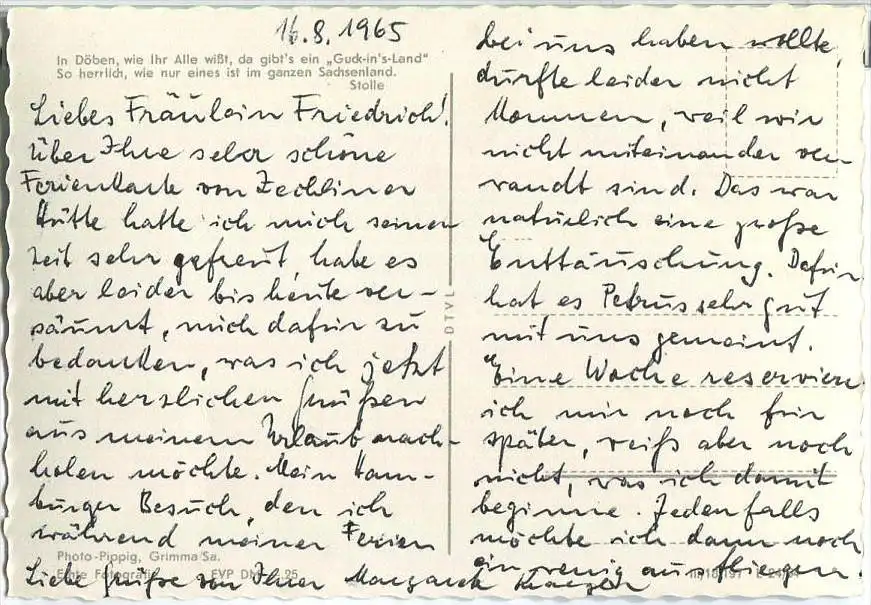 16.8.1965
In Döben, wie Ihr Alle wißt, da gibt's ein „Guck-in's-Land"
So herrlich, wie nur eines ist im ganzen Sachsenland.
Stolle
Liebes Fräulein Friedrich!
Über Ihre sehr schöne
Ferienkarte von Zechliner
Hütte hatte ich mich seiner
zeit sehr gefreut, habe es
aber leider bis heute ver-
säumt, mich dafür zu
bedanken, was ich jetzt
mit herzlichen Grüßen
aus meinem Urlaub nach-
holen möchte. Mein Ham-
burger Besuch, den ich
während meiner Ferien
bei uns haben wollte,
durfte leider nicht
kommen, weil wir
nicht miteinander ver
wandt sind. Das war
natürlich eine große
Enttäuschung. Dafür
hat es Petrus sehr gut
mit uns gemeint.
Eine Woche reserviere
ich mir noch für
später, weiß aber noch
nicht, was ich damit
beginne. Jedenfalls
möchte ich dann noch
ein wenig ausfliegen.
Liebe Grüße von Ihrer Margarete
DTVL
Photo-Pippig, Grimma/Sa.
Echte Fotografie EVP DM -.25